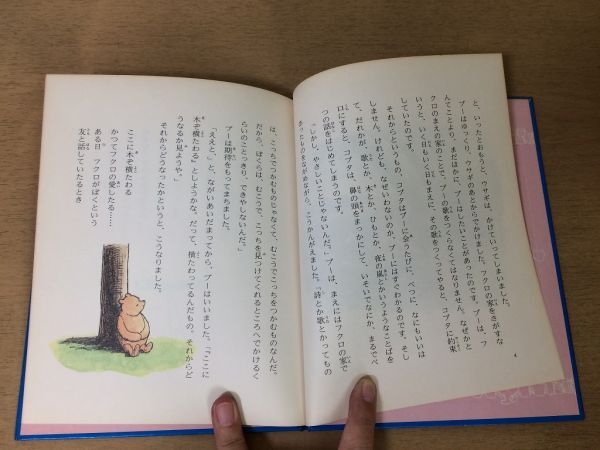 と、いったとおもうと、ウサギは、かけていってしまいました。
プーはゆっくり、ウサギのあとからでかけました。フクロの家をさがすな
んてことより、まだほかに、プーはしたいことがあったのです。プーは、フ
クロのまえの家のことで、プーの歌をつくらなくてはなりません。なぜかと
いうと、いく日もいく日もまえに、その歌をつくってやると、コブタに約束
していたのです。
それからというもの、コブタはプーに会うたびに、べつに、なにもいいは
しません。けれども、なぜいわないのか、プーにはすぐわかるのです。そし
て、だれかが、歌とか、木とか、ひもとか、夜の嵐とかというようなことばを
口にすると、コブタは、鼻の頭をまっかにして、いそいでなにか、まるでべ
つの話をはじめてしまうのです。
「しかし、やさしいことじゃないんだ。」プーは、まえにはフクロの家で
あったものをながめながら、こうかんがえました。「詩とか歌とかってもの
4
は、こっちでつかむものじゃなくて、むこうでこっちをつかむものなんだ。
だから、ぼくらは、むこうで、こっちを見つけてくれるところへでかけるく
らいのことっきり、できやしないんだ。」
プーは期待をもってまちました。
「ええと。」と、ながいあいだまってから、プーはいいました。「『ここに
木ぞ横たわる』としようかな。だって、横たわってるんだもの。それからど
うなるか見ようや。」
それからどうなったかというと、こうなりました。
ここに木ぞ横たわる
かつてフクロの愛したる……
ある日 フクロがぼくという
友と話していたるとき